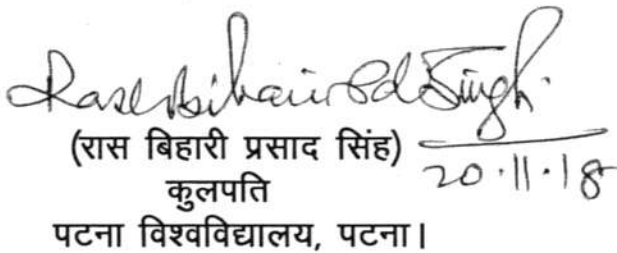 Rasbihari Pd Singh.
(रास बिहारी प्रसाद सिंह)
20.11.18
कुलपति
पटना विश्वविद्यालय, पटना।